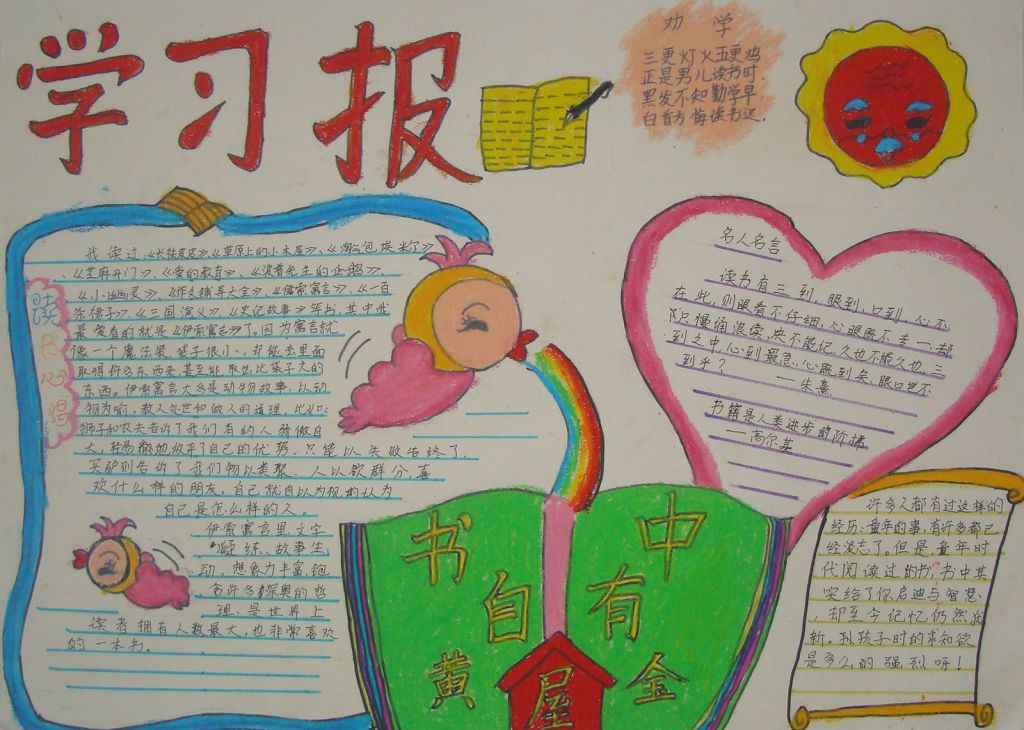 学习报
劝 学
三更灯火五更鸡
正是男儿读书时.
黑发不知勤学早
白首方悔读书迟.
读书心得
我读过《长袜皮皮》、《草原上的小木屋》、《淘气包埃米尔》
、《芝麻开门》、《爱的教育》、《波普先生的企鹅》、
《小幽灵》、《作文辅导大全》、《伊索寓言》、《一百
条裙子》、《三国演义》、《史记故事》等书,其中我
最爱看的就是《伊索寓言》了。因为寓言就
像一个魔法袋,袋子很小,却能去里面
取得许多东西来,甚至能取出比袋子大的
东西。伊索寓言大多是动物故事,以动
物为喻,教人处世和做人的道理,比如:
狮子和农夫告诉了我们有的人骄傲自
大,轻易地放弃了自己的优势,只能以失败告终了.
买驴则告诉了我们物以类聚、人以欲群分,喜
欢什么样的朋友,自己就自以为视的认为
自己是怎么样的人。
伊索寓言里,文字
凝练、故事生
动,想象力丰富,饱
含许多深奥的哲
理、是世界上
读者拥有人数最大,也非常喜欢
的一本书。
名人名言
读书有三到,眼到,口到,心不
在此,则眼看不仔细,心眼既不专一,却
只慢诵浪读,决不能记,久也不能久也,三
到之中,心到最急,心既到矣,眼口岂不
到乎?
—朱熹
书籍是人类进步的阶梯
—高尔基
许多人都有过这样的
经历:童年的事,有许多都已
经淡忘了。但是,童年时
代阅读过的书,书中其
实给了你启迪与智慧,
却至今记忆仍然犹
新。孙孩子时的求知欲
是多么的强烈呀!
书中
自有
黄金
屋